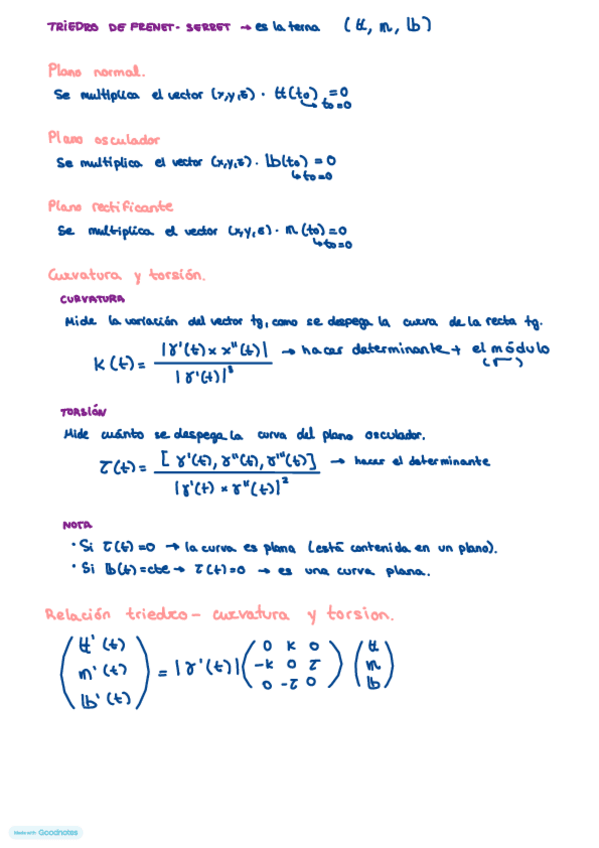 TRIEDRO DE FRENET-SERRET → es la terna (𝕥, 𝕟, 𝕓)
Plano normal.
Se multiplica el vector (x,y,z) · 𝕥(t₀) = 0
↳ t₀=0
Plano osculador
Se multiplica el vector (x,y,z) · 𝕓(t₀) = 0
↳ t₀=0
Plano rectificante
Se multiplica el vector (x,y,z) · 𝕟(t₀) = 0
↳ t₀=0
Curvatura y torsión.
CURVATURA
Mide la variación del vector tg, como se despega la curva de la recta tg.
K(t) = |γ'(t) × x''(t)| / |γ'(t)|³ → hacer determinante + el módulo
(√‾)
TORSIÓN
Mide cuánto se despega la curva del plano osculador.
τ(t) = [γ'(t), γ''(t), γ'''(t)] / |γ'(t) × γ''(t)|² → hacer el determinante
NOTA
· Si τ(t)=0 → la curva es plana (está contenida en un plano).
· Si 𝕓(t)=cte → τ(t)=0 → es una curva plana.
Relación triedro - curvatura y torsion.
(𝕥'(t)
𝕟'(t)
𝕓'(t)) = |γ'(t)| (0 K 0
-K 0 τ
0 -τ 0) (𝕥
𝕟
𝕓)
Made with Goodnotes